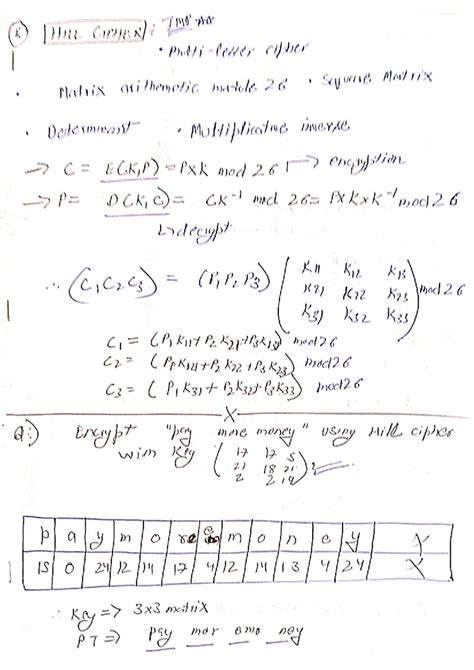 (K) HILL CIPHER: Imp
• Multi-letter cipher
• Matrix arithematic module 26 • Square Matrix
• Determinant • Multiplicative inverse
→ C = E(K,P) = P×K mod 26 → encryption
→ P = D(K,C) = CK⁻¹ mod 26 = P×K×K⁻¹ mod 26
↳ decrypt
∴ (C₁C₂C₃) = (P₁P₂P₃) ( K11 K12 K13
K21 K22 K23
K31 K32 K33 ) mod 26
C₁ = (P₁K11+P₂K21+P₃K13) mod 26
C₂ = (P₁K121+P₂K22+P₃K23) mod 26
C₃ = (P₁K31+P₂K32+P₃K33) mod 26
X
Q:) Encrypt "pay more money" using Hill cipher
with Key ( 17 17 5
21 18 21
2 2 19 );
p a y m o r e m o n e y X
15 0 24 12 14 17 4 12 14 13 4 24 X
∴ Key => 3x3 matrix
PT => pay mor emo ney